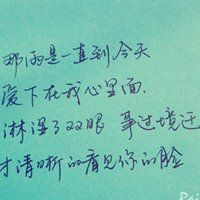 那雨是一直到今天
爱下在我心里面.
淋湿了双眼 事过境迁
才清晰的看见你的脸